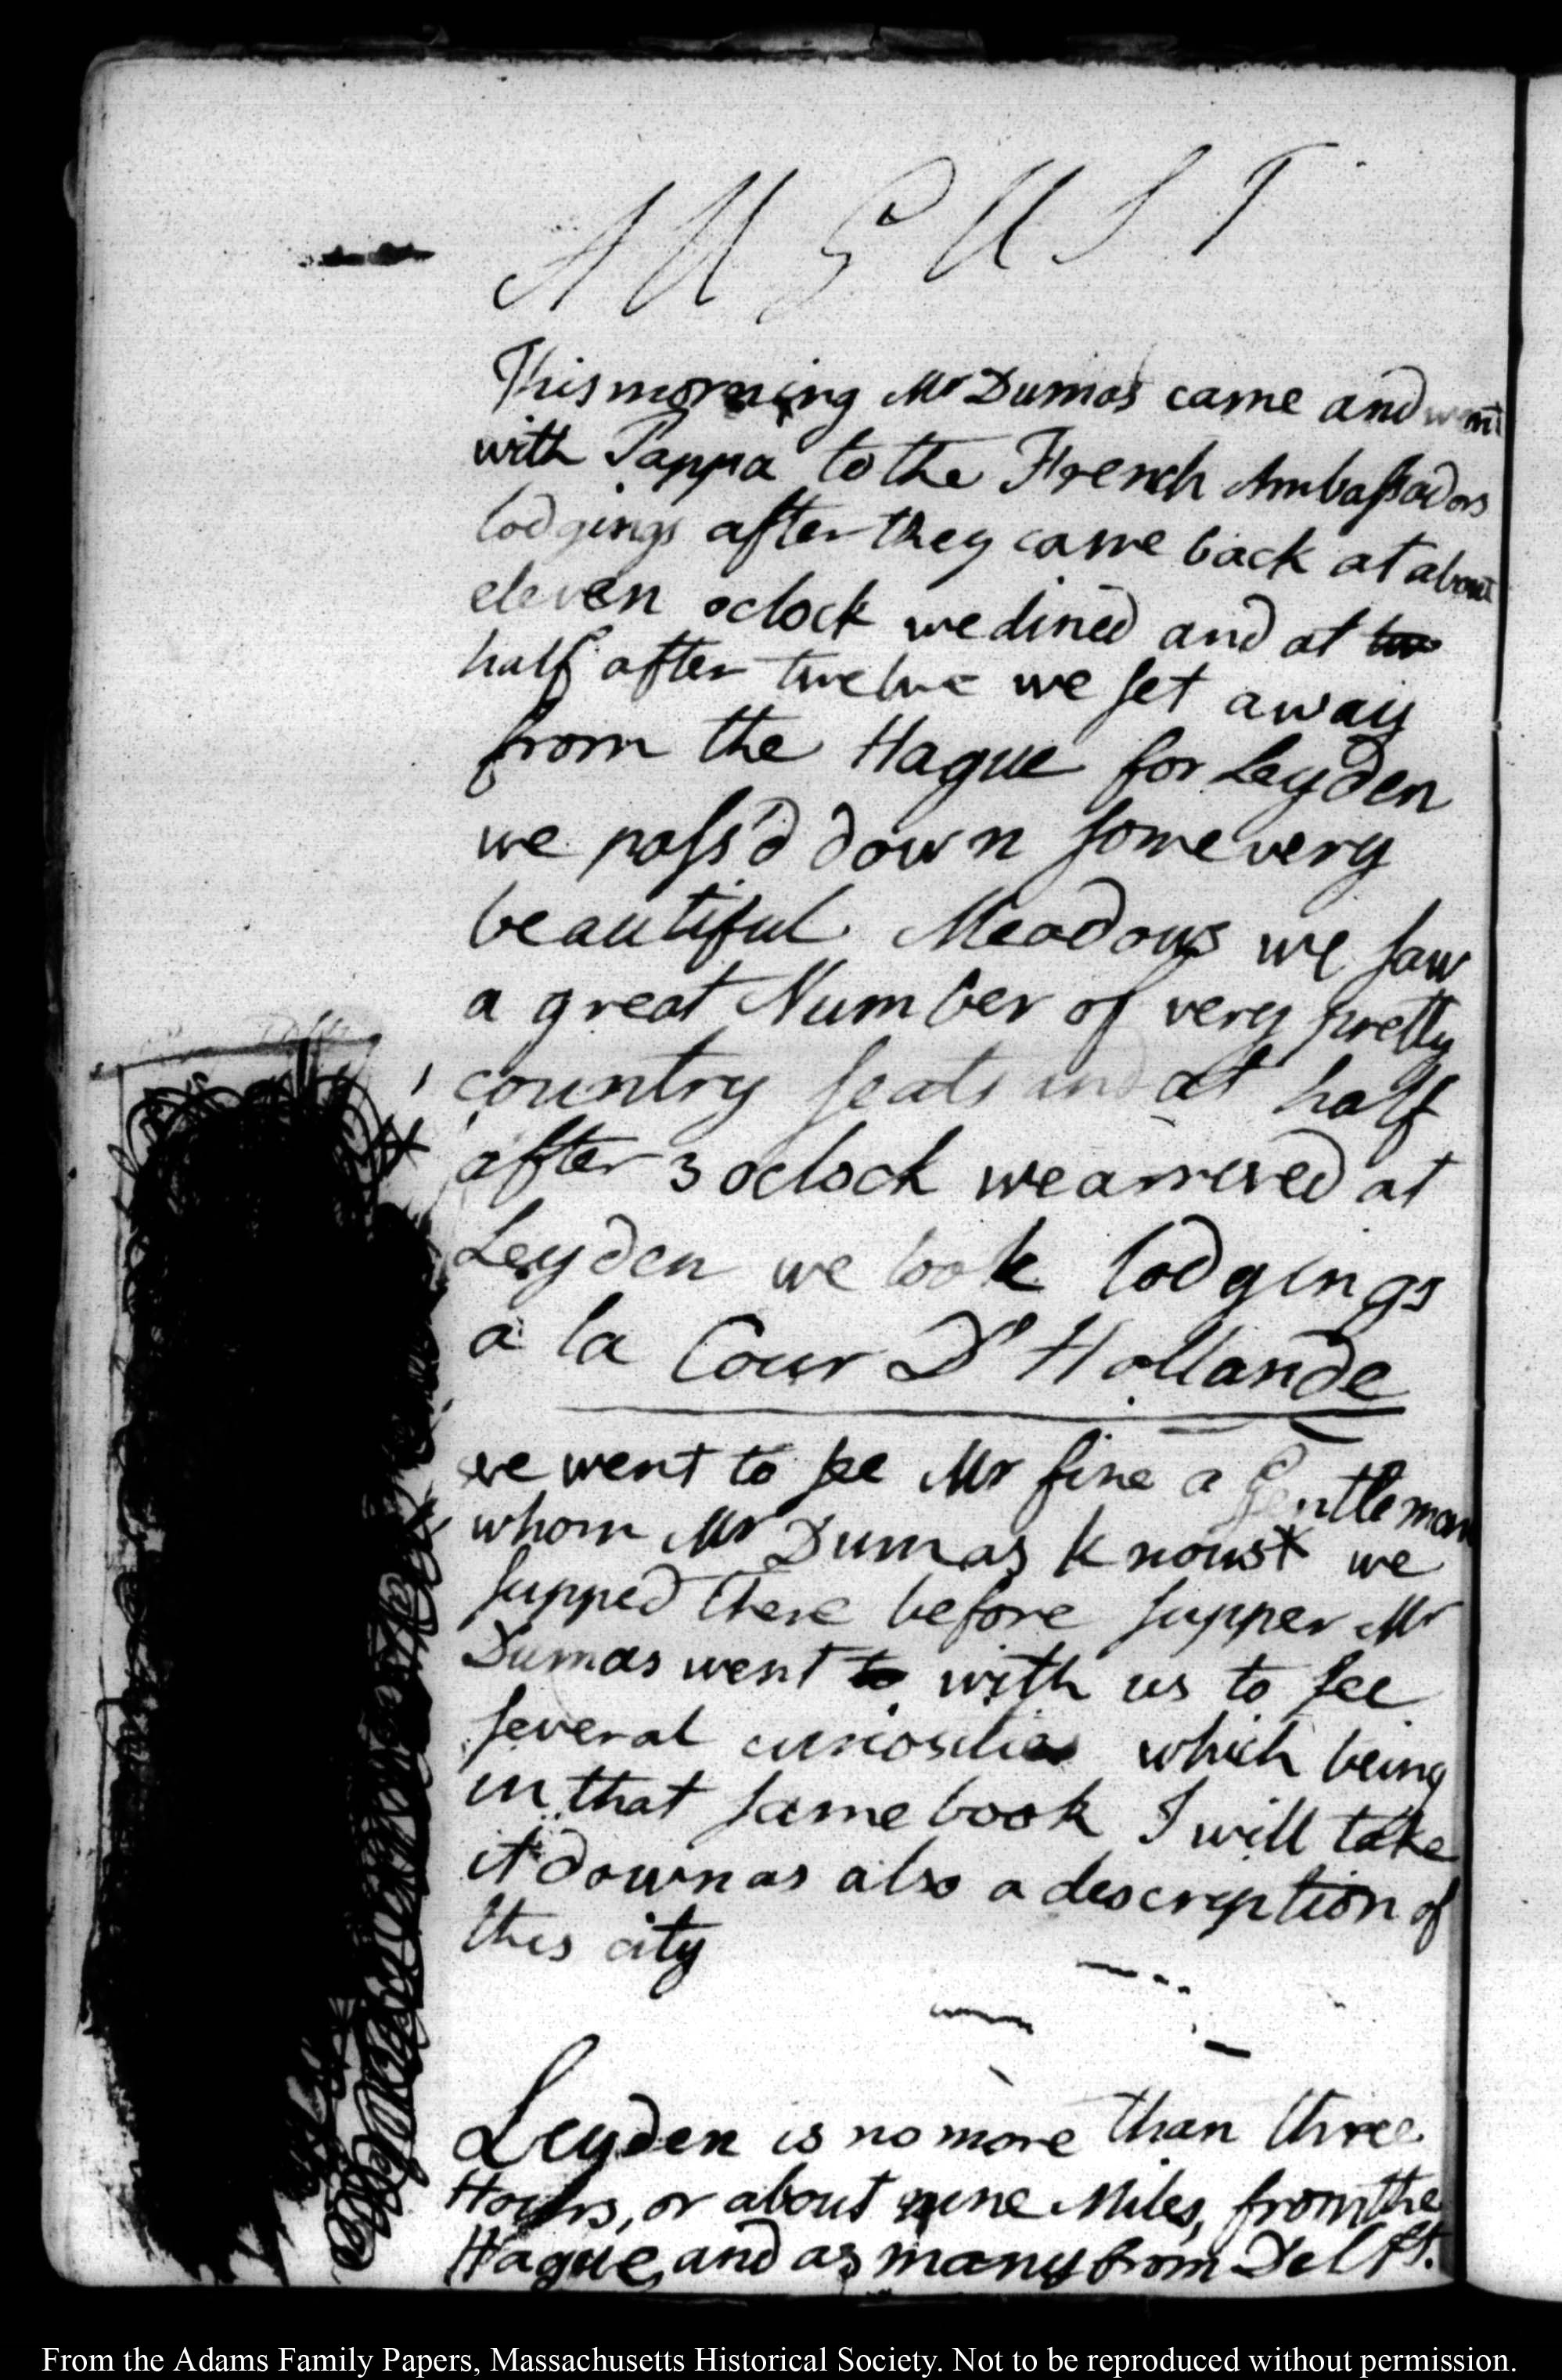 AUGUST
This morning Mr Dumas came and went
with Pappa to the French Ambassadors
lodgings after they came back at about
eleven oclock we dined and at two
half after twelve we set away
from the Hague for Leyden
we pass'd down some very
beautiful Meadows we saw
a great Number of very pretty
country seats and at half
after 3 oclock we arrived at
Leyden we took lodgings
a la Cour D'Hollande
we went to see Mr fine a Gentleman
whom Mr Dumas knows we
supped there before supper Mr
Dumas went to with us to see
several curiosities which being
in that same book I will take
it down as also a description of
this city
Leyden is no more than three
Hours, or about nine Miles, from the
Hague, and as many from Delft.
From the Adams Family Papers, Massachusetts Historical Society. Not to be reproduced without permission.